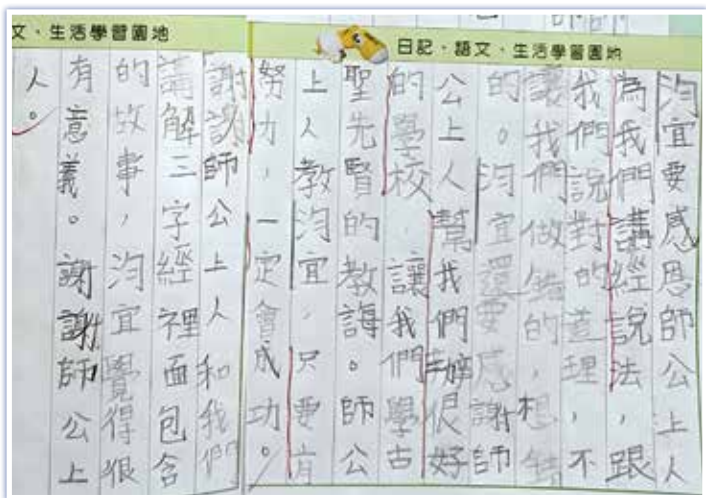 文、生活學習園地
日記、語文、生活學習園地
洵宜要感恩師公上人
為我們講經說法，跟
我們說對的道理，不
讓我們做錯的，想錯
的。洵宜還要感謝師
公上人幫我們辦很好
的學校，讓我們學古
聖先賢的教誨。師公
上人教洵宜，只要肯
努力，一定會成功。
謝謝師公上人和我們
講解三字經裡面包含
的故事，洵宜覺得很
有意義。謝謝師公上
人。